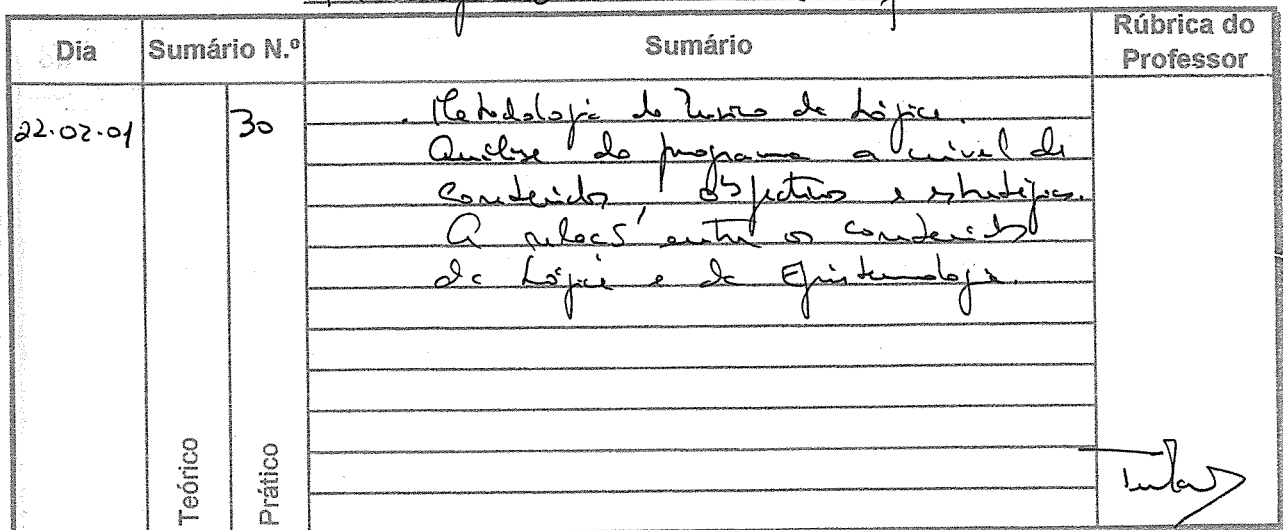 Dia Sumário N.º Sumário Rúbrica do Professor
22.02.01 30 . Metodologia do Ensino da Lógica.
Análise do programa a nível de
conteúdos, objectivos e estratégias.
A relação entre os conteúdos
da Lógica e da Epistemologia.
Teórico Prático